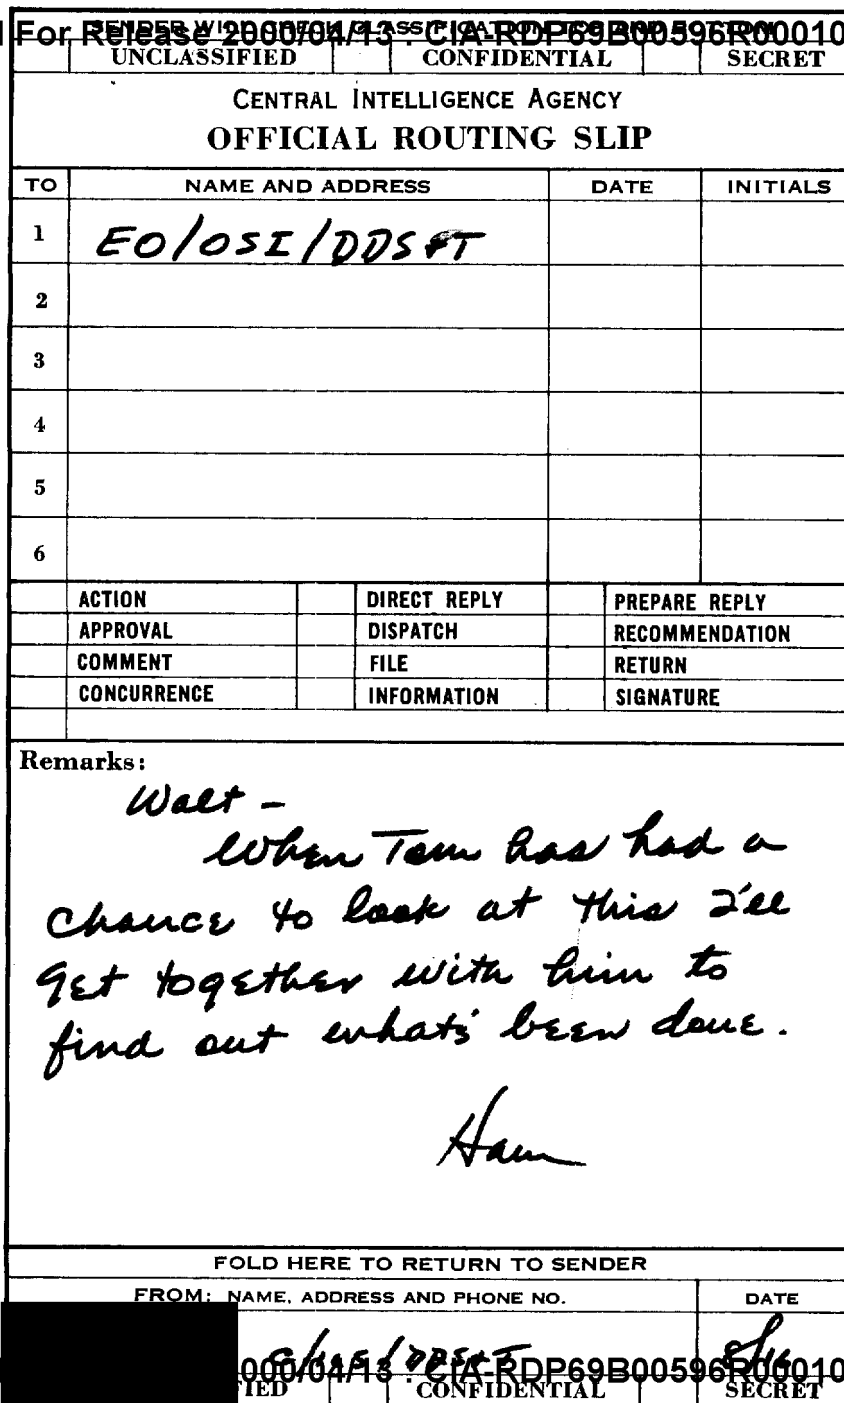 For Release 2000/04/13 : CIA-RDP69B00596R00010
SENDER WILL CHECK CLASSIFICATION TOP AND BOTTOM
UNCLASSIFIED CONFIDENTIAL SECRET
CENTRAL INTELLIGENCE AGENCY
OFFICIAL ROUTING SLIP
TO NAME AND ADDRESS DATE INITIALS
1 EO/OSI/DDS&T
2
3
4
5
6
ACTION DIRECT REPLY PREPARE REPLY
APPROVAL DISPATCH RECOMMENDATION
COMMENT FILE RETURN
CONCURRENCE INFORMATION SIGNATURE
Remarks:
Walt -
When Tom has had a
chance to look at this I'll
get together with him to
find out what's been done.
Ham
FOLD HERE TO RETURN TO SENDER
FROM: NAME, ADDRESS AND PHONE NO. DATE
/DDS&T 8/16
000/04/13 : CIA-RDP69B00596R00010
IED CONFIDENTIAL SECRET